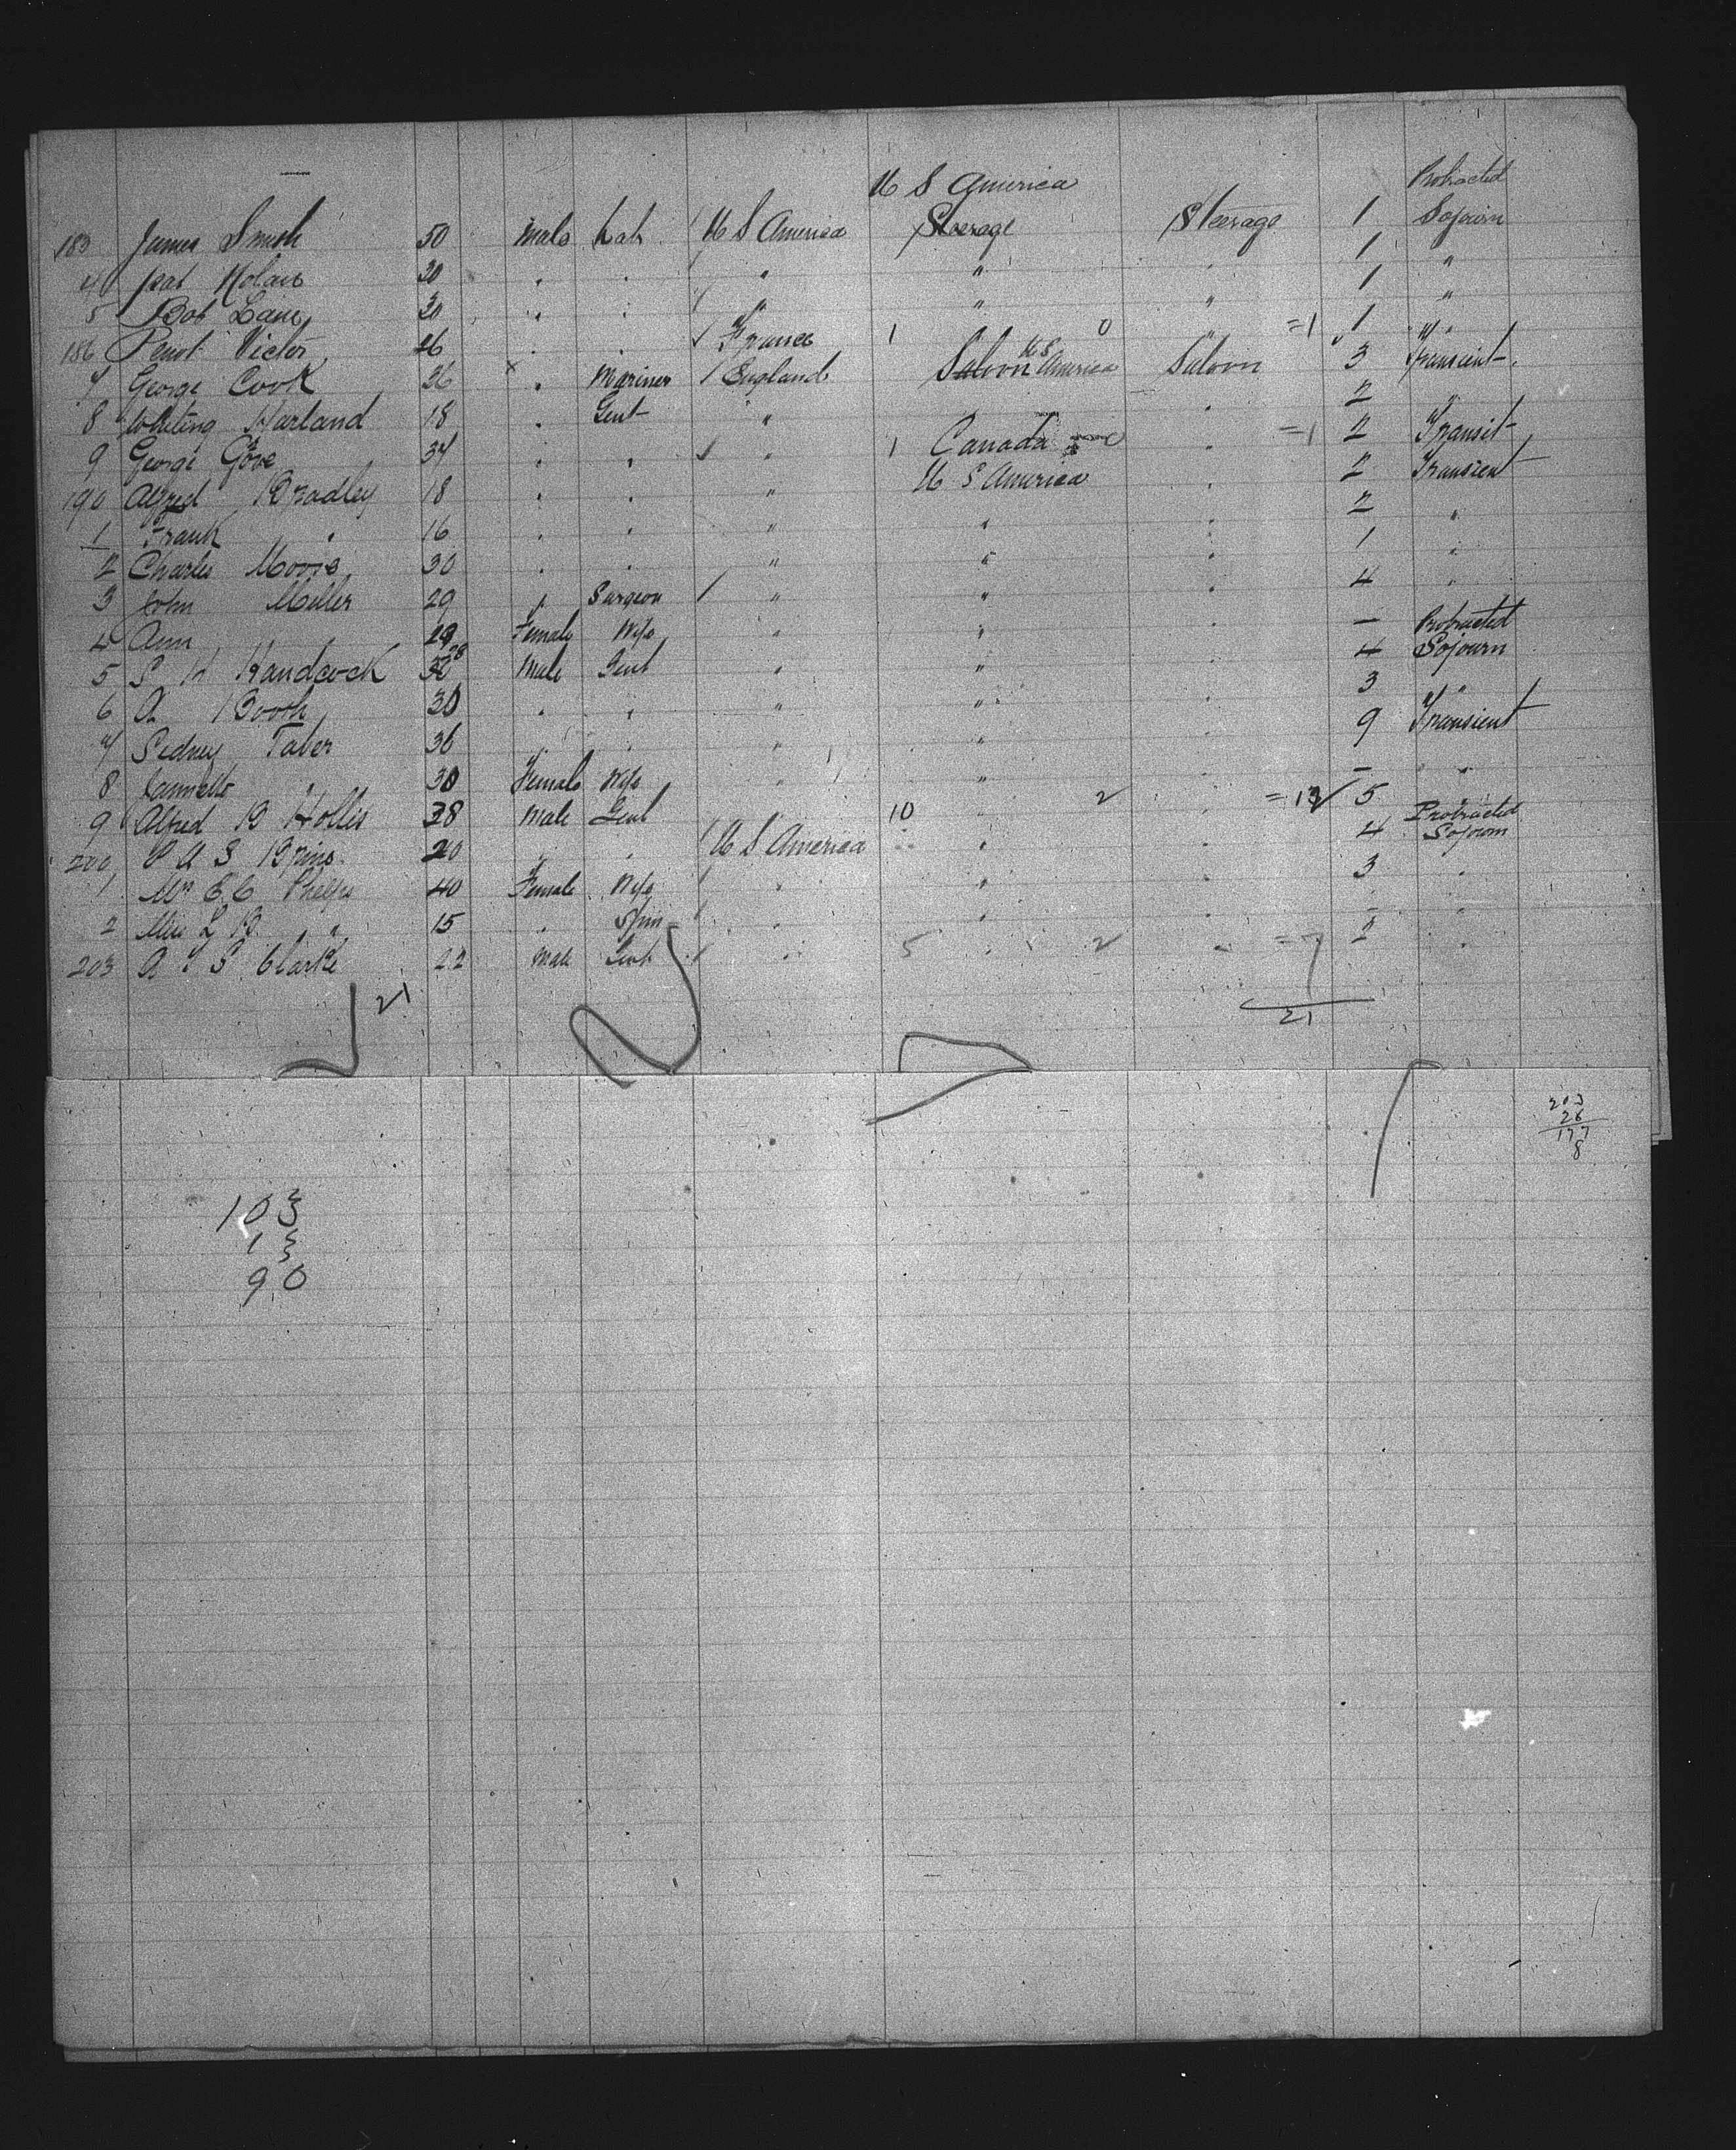 U S America Protracted
183 James Smith 50 Male Lab U S America Steerage Steerage 1 Sojourn
4 Pat Nolan 30 " " " " " 1 "
5 Bob Lain 30 " " " " " 1 "
186 Victor 26 " " France 1 0 =1 1 "
7 George Cook 36 × " Mariner England Saloon U S America Saloon 3 Transient
8 Whiting Harland 18 " Gent " " 2 "
9 George Gore 34 " " " 1 Canada " =1 2 Transit
190 Alfred Bradley 18 " " " U S America " 2 Transient
1 Frank " 16 " " " " " 2 "
2 Charles Moore 30 " " " " " 1 "
3 John Miller 29 " Surgeon " " " 4 "
4 Ann 29 Female Wife " " " — Protracted
5 S H Handcock 28 Male Gent " " " 4 Sojourn
6 A Booth 30 " " " " " 3 "
7 Sidney Taber 36 " " " " " 9 Transient
8 " 30 Female Wife " " " — "
9 Alfred B Hollis 38 Male Gent 10 " 2 " =13 5 "
Protracted
200 P A S 20 " " U S America " " 4 Sojourn
1 Mrs E C Phelps 40 Female Wife " " " 3 "
2 Miss L B " 15 " Spin " " " - "
203 A S Clarke 22 Male Gent " 5 " 2 " =7 2 "
21
21
203
26
177
8
103
13
90